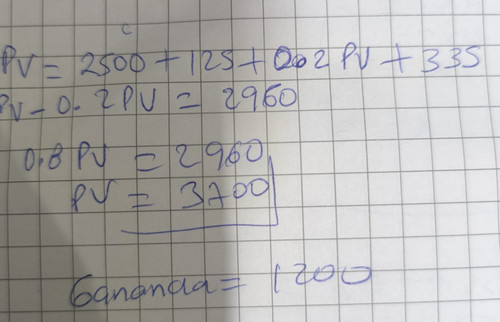 C
PV = 2500 + 125 + 0.2PV + 335
PV - 0.2PV = 2960
0.8 PV = 2960
PV = 3700
Ganancia = 1200